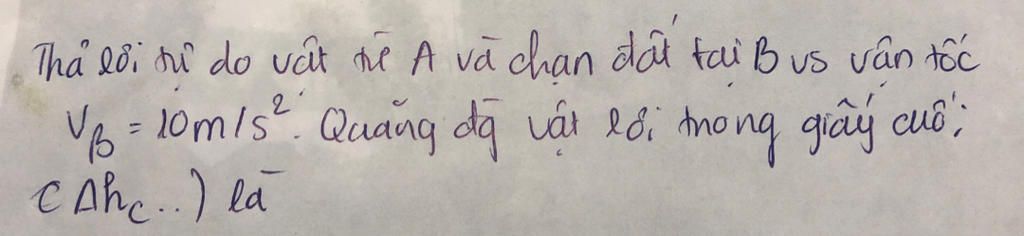 Thả rơi tự do vật từ A và chạm đất tại B vs vận tốc
V_B = 10m/s². Quãng đg vật rơi trong giây cuối
(Δh_c..) là